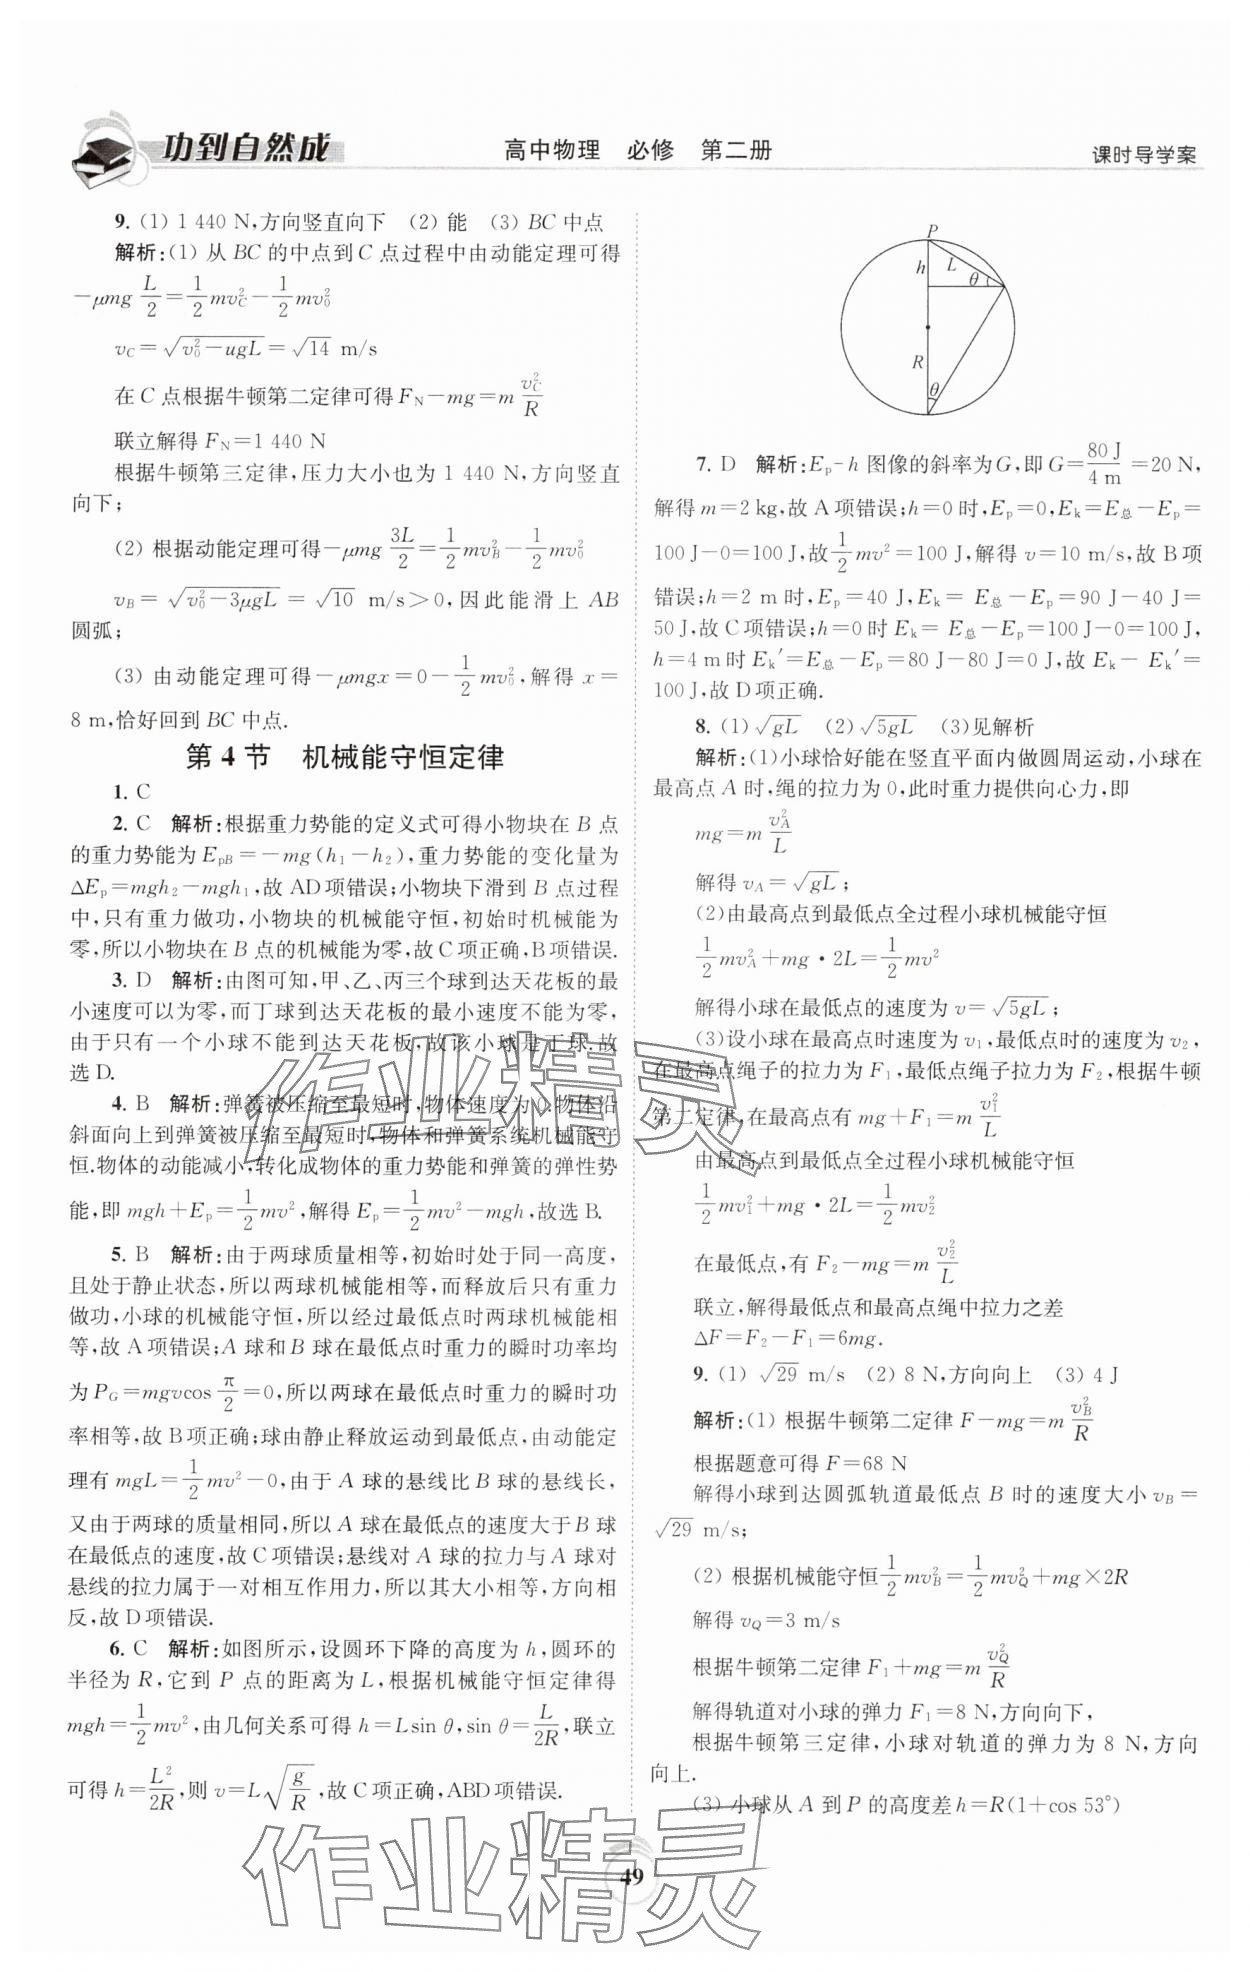 功到自然成
高中物理 必修 第二册
课时导学案
9. (1) 1 440 N,方向竖直向下 (2) 能 (3) BC 中点
解析:(1) 从 BC 的中点到 C 点过程中由动能定理可得
−μmg L/2 = 1/2 mv_C² − 1/2 mv₀²
v_C = √(v₀²−ugL) = √14 m/s
在 C 点根据牛顿第二定律可得 F_N−mg=m v_C²/R
联立解得 F_N=1 440 N
根据牛顿第三定律,压力大小也为 1 440 N,方向竖直
向下;
(2) 根据动能定理可得−μmg 3L/2 = 1/2 mv_B² − 1/2 mv₀²
v_B = √(v₀²−3μgL) = √10 m/s>0,因此能滑上 AB
圆弧;
(3) 由动能定理可得−μmgx=0− 1/2 mv₀²,解得 x=
8 m,恰好回到 BC 中点.
第 4 节 机械能守恒定律
1. C
2. C 解析:根据重力势能的定义式可得小物块在 B 点
的重力势能为 E_pB=−mg(h₁−h₂),重力势能的变化量为
ΔE_p=mgh₂−mgh₁,故 AD项错误;小物块下滑到 B 点过程
中,只有重力做功,小物块的机械能守恒,初始时机械能为
零,所以小物块在 B 点的机械能为零,故 C 项正确,B 项错误.
3. D 解析:由图可知,甲、乙、丙三个球到达天花板的最
小速度可以为零,而丁球到达天花板的速度不能为零,
由于只有一个小球不能到达天花板,故该小球是丁球.故
选 D.
4. B 解析:弹簧被压缩至最短时,物体速度为 0,物体沿
斜面向上到弹簧被压缩至最短时,物体和弹簧系统机械能守
恒.物体的动能减小,转化成物体的重力势能和弹簧的弹性势
能,即 mgh+E_p= 1/2 mv²,解得 E_p= 1/2 mv²−mgh,故选 B.
5. B 解析:由于两球质量相等,初始时处于同一高度,
且处于静止状态,所以两球机械能相等,而释放后只有重力
做功,小球的机械能守恒,所以经过最低点时两球机械能相
等,故 A 项错误;A 球和 B 球在最低点时重力的瞬时功率均
为 P_G=mgvcos π/2 =0,所以两球在最低点时重力的瞬时功
率相等,故 B 项正确;球由静止释放运动到最低点,由动能定
理有 mgL= 1/2 mv²−0,由于 A 球的悬线比 B 球的悬线长,
又由于两球的质量相同,所以 A 球在最低点的速度大于 B 球
在最低点的速度,故 C 项错误;悬线对 A 球的拉力与 A 球对
悬线的拉力属于一对相互作用力,所以其大小相等,方向相
反,故 D 项错误.
6. C 解析:如图所示,设圆环下降的高度为 h,圆环的
半径为 R,它到 P 点的距离为 L,根据机械能守恒定律得
mgh= 1/2 mv²,由几何关系可得 h=Lsin θ,sin θ= L/2R,联立
可得 h= L²/2R,则 v=L√(g/R),故 C 项正确,ABD 项错误.
P
h
L
θ
R
θ
7. D 解析:E_p-h 图像的斜率为 G,即 G= 80 J/4 m =20 N,
解得 m=2 kg,故 A 项错误;h=0 时,E_p=0,E_k=E_总−E_p=
100 J−0=100 J,故 1/2 mv²=100 J,解得 v=10 m/s,故 B 项
错误;h=2 m 时,E_p=40 J,E_k= E_总−E_p=90 J−40 J=
50 J,故 C 项错误;h=0 时 E_k= E_总−E_p=100 J−0=100 J,
h=4 m 时 E_k′=E_总−E_p=80 J−80 J=0 J,故 E_k− E_k′=
100 J,故 D 项正确.
8. (1) √gL (2) √5gL (3)见解析
解析:(1)小球恰好能在竖直平面内做圆周运动,小球在
最高点 A 时,绳的拉力为 0,此时重力提供向心力,即
mg=m v_A²/L
解得 v_A=√gL;
(2)由最高点到最低点全过程小球机械能守恒
1/2 mv_A²+mg·2L= 1/2 mv²
解得小球在最低点的速度为 v=√5gL;
(3)设小球在最高点时速度为 v₁,最低点时的速度为 v₂,
在最高点绳子的拉力为 F₁,最低点绳子拉力为 F₂,根据牛顿
第二定律,在最高点有 mg+F₁=m v₁²/L
由最高点到最低点全过程小球机械能守恒
1/2 mv₁²+mg·2L= 1/2 mv₂²
在最低点,有 F₂−mg=m v₂²/L
联立,解得最低点和最高点绳中拉力之差
ΔF=F₂−F₁=6mg.
9. (1) √29 m/s (2) 8 N,方向向上 (3) 4 J
解析:(1) 根据牛顿第二定律 F−mg=m v_B²/R
根据题意可得 F=68 N
解得小球到达圆弧轨道最低点 B 时的速度大小 v_B=
√29 m/s;
(2) 根据机械能守恒 1/2 mv_B²= 1/2 mv_Q²+mg×2R
解得 v_Q=3 m/s
根据牛顿第二定律 F₁+mg=m v_Q²/R
解得轨道对小球的弹力 F₁=8 N,方向向下,
根据牛顿第三定律,小球对轨道的弹力为 8 N,方向
向上.
(3) 小球从 A 到 P 的高度差 h=R(1+cos 53°)
作业精灵
作业精灵
49